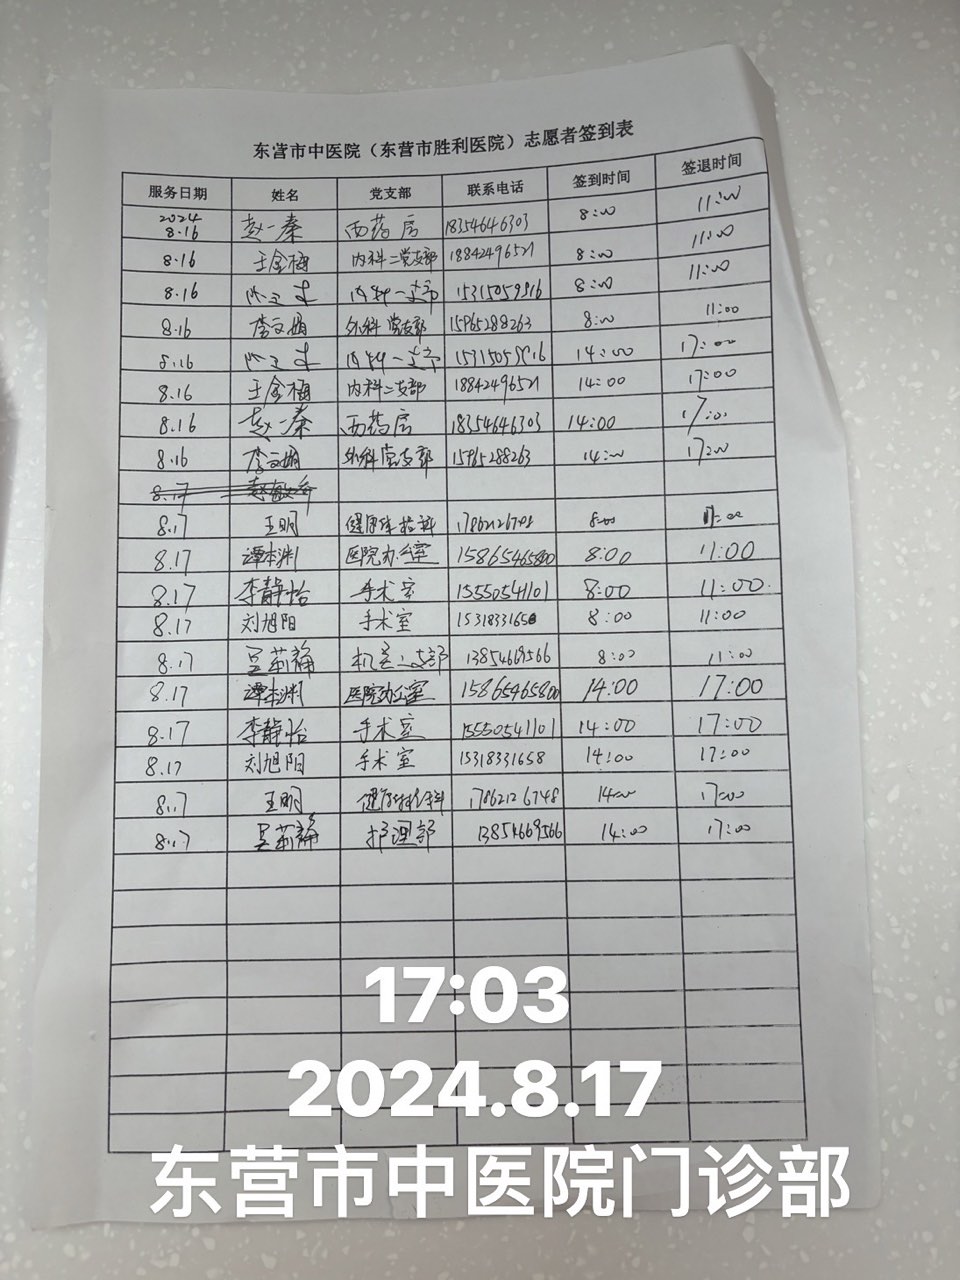 东营市中医院（东营市胜利医院）志愿者签到表
服务日期 姓名 党支部 联系电话 签到时间 签退时间
2024
8.16 赵一秦 西药房 18354646303 8:00 11:00
8.16 王金梅 内科二党支部 18842496521 8:00 11:00
8.16 内科一支部 15315059816 8:00 11:00
8.16 李文娟 外科党支部 15965288263 8:00 11:00
8.16 内科一支部 15315059816 14:00 17:00
8.16 王金梅 内科二支部 18842496521 14:00 17:00
8.16 赵一秦 西药房 18354646303 14:00 17:00
8.16 李文娟 外科党支部 15965288263 14:00 17:00
8.17
8.17 王明 健康体检科 8:00 11:00
8.17 谭本渊 医院办公室 15865465800 8:00 11:00
8.17 李静怡 手术室 15550541101 8:00 11:00
8.17 刘旭阳 手术室 15318331658 8:00 11:00
8.17 吴莉静 机关二支部 13854669566 8:00 11:00
8.17 谭本渊 医院办公室 15865465800 14:00 17:00
8.17 李静怡 手术室 15550541101 14:00 17:00
8.17 刘旭阳 手术室 15318331658 14:00 17:00
8.17 王明 健康体检科 17862126748 14:00 17:00
8.17 吴莉静 护理部 13854669566 14:00 17:00
17:03
2024.8.17
东营市中医院门诊部